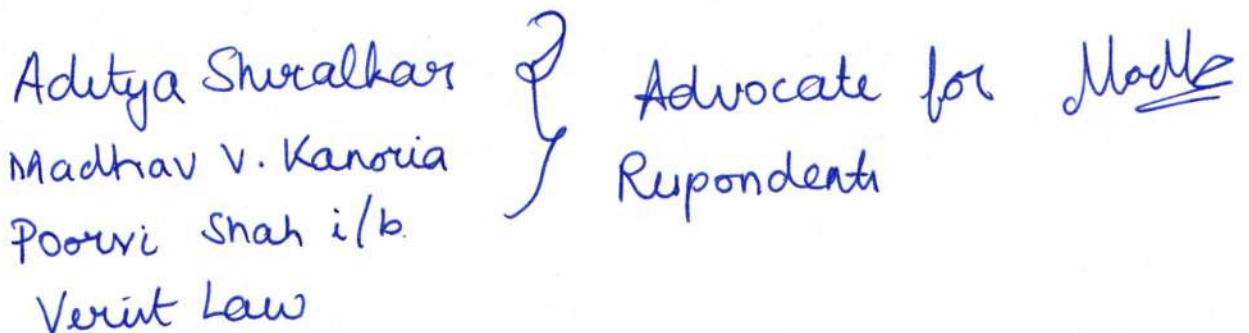 Aditya Shiralkar
Madhav V. Kanoria
Poorvi Shah i/b.
Verist Law
Advocate for
Respondents